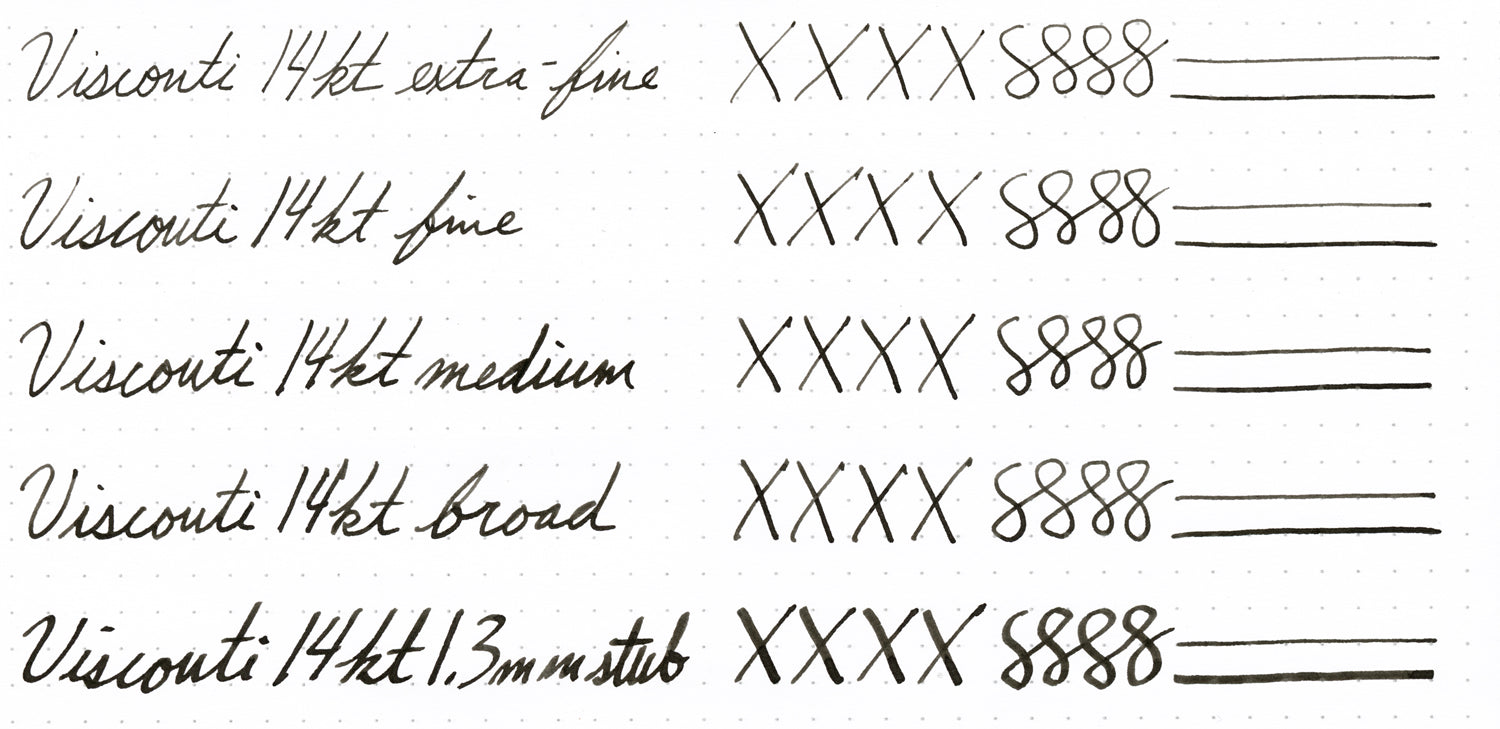 Visconti 14kt extra-fine XXXX 8888
Visconti 14kt fine XXXX 8888
Visconti 14kt medium XXXX 8888
Visconti 14kt broad XXXX 8888
Visconti 14kt 1.3mm stub XXXX 8888